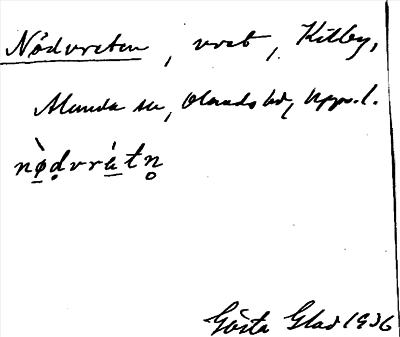 Nådvreten, vret, Kitley,
Almunda sn, Olands hd, Upps. l.
nø̀dvrétn̥
Gösta Glad 1936